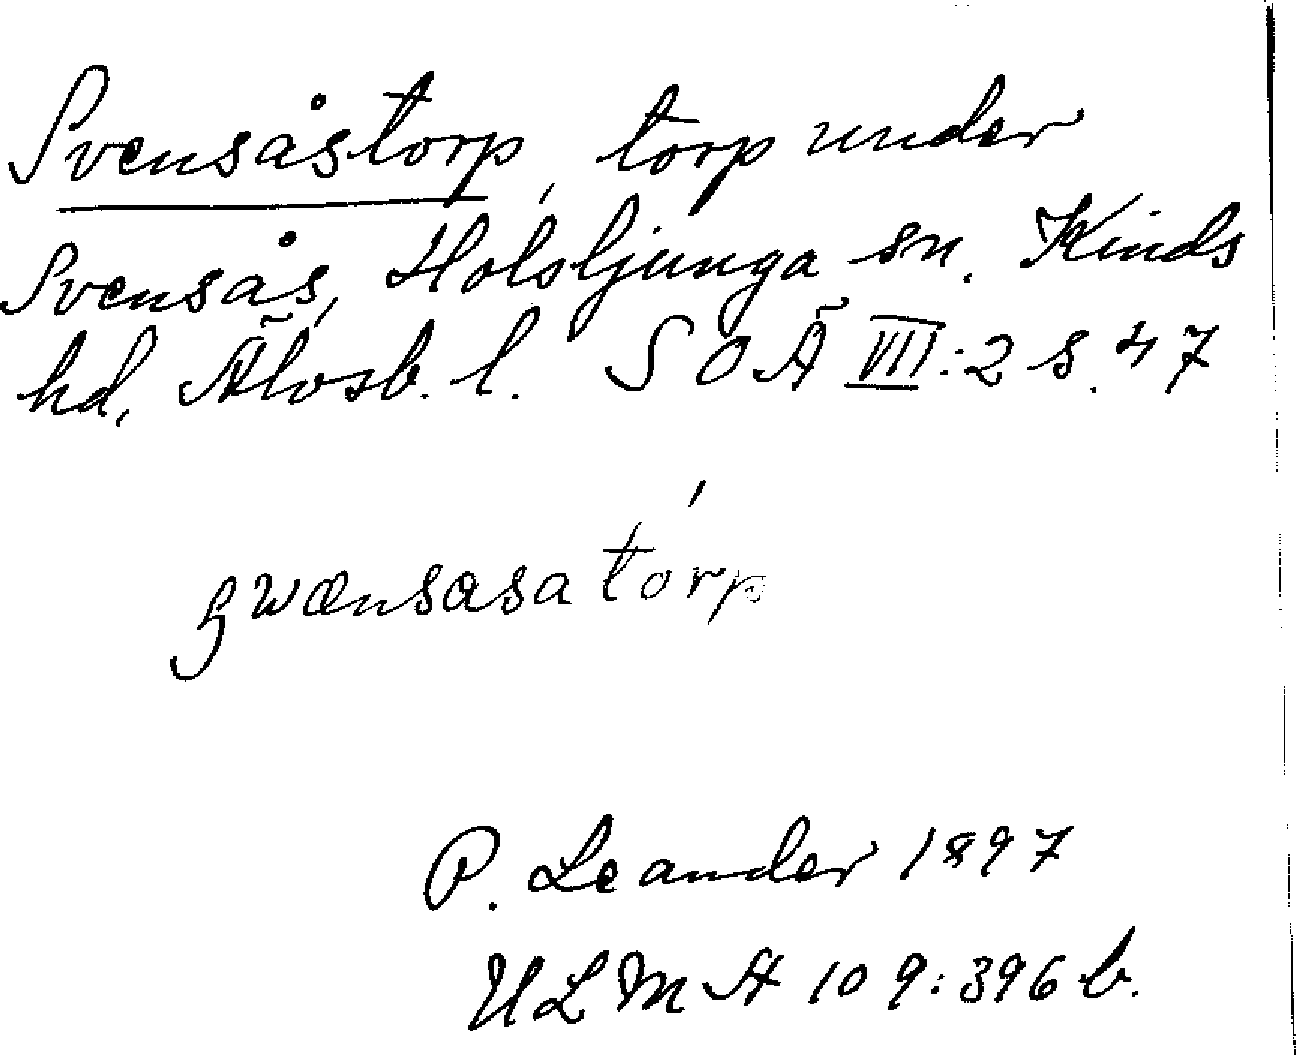 Svensåstorp, torp under
Svensås, Holsljunga sn. Kinds
hd, Älvsb. l. S O Ä VII:2 s. 47
swænsasa tórp
P. Leander 1897
ULMA 109:396 b.